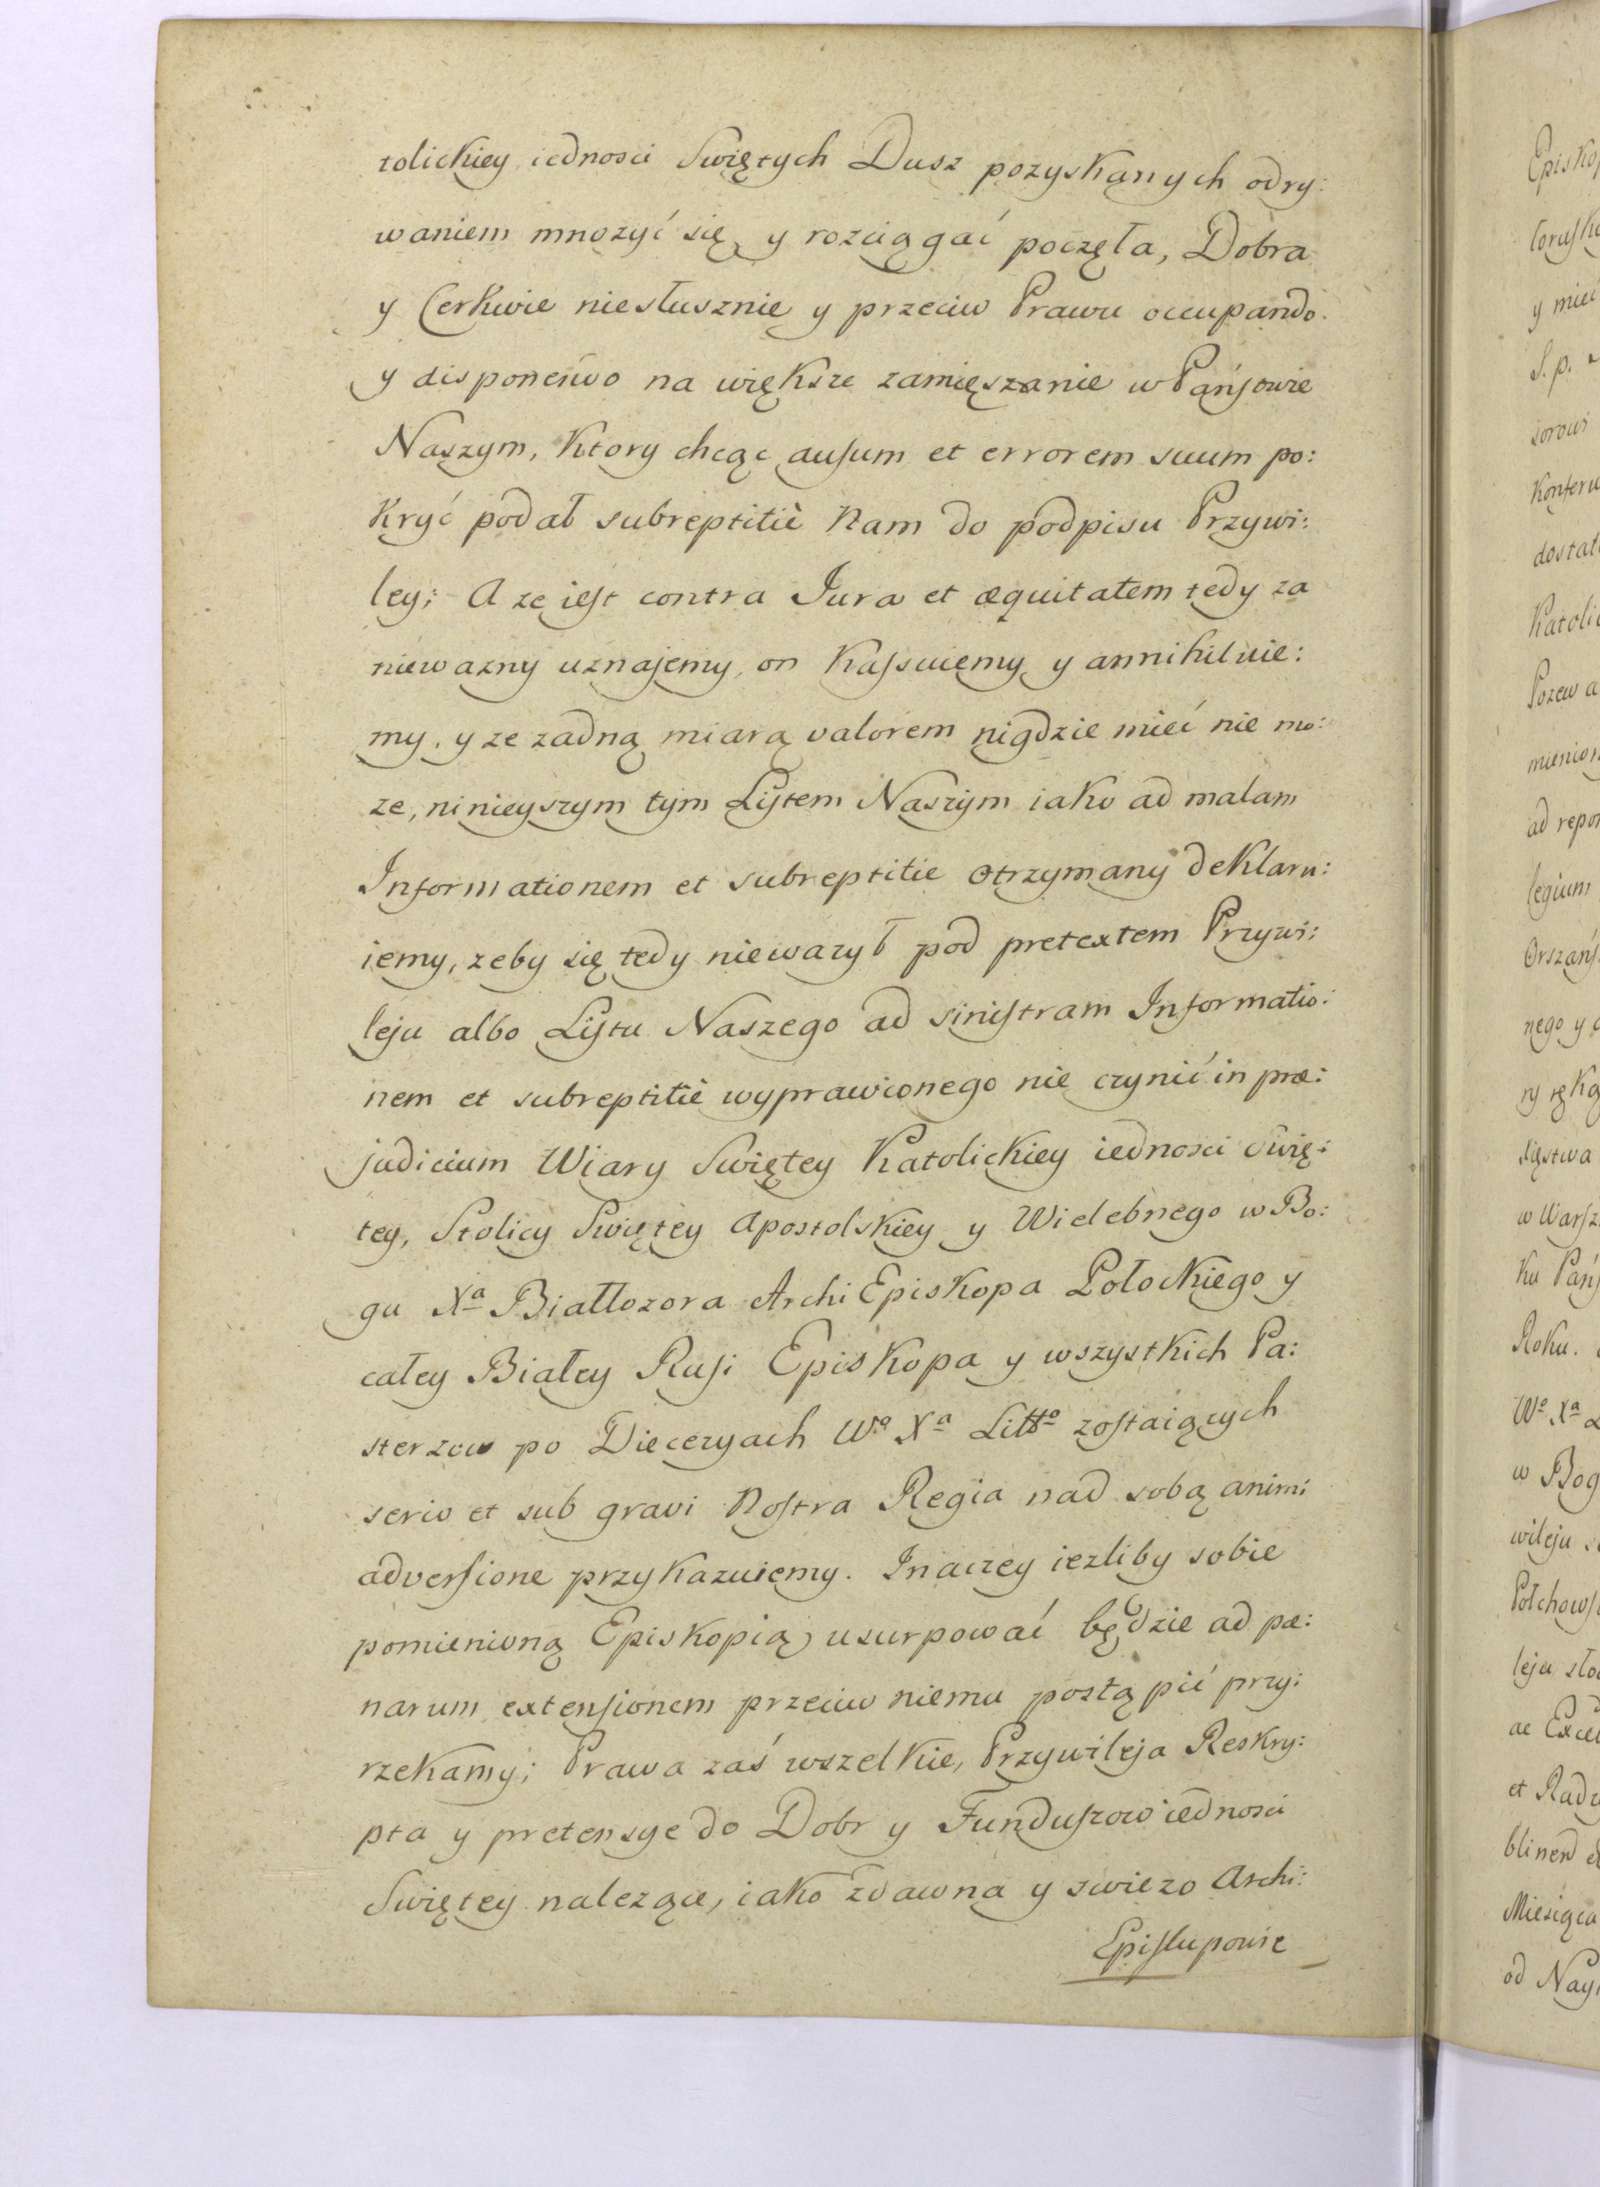 tolickiey iednosci Swiętych Dusz pozyskanych odry:
waniem mnozyć się y rozciągać poczęła, Dobra
y Cerkwie niesłusznie y przeciw Prawu occupando
y disponendo na większe zamięszanie w Pańſtwie
Naszym, Ktory chcąc auſum et errorem suum po:
Kryć podał subreptitiè Nam do podpisu Przywi:
ley; A ze ieſt contra Jura et æquitatem tedy za
niewazny uznajemy, on Kaſsuiemy y annihiluie:
my, y ze zadną miarą valorem nigdzie mieć nie mo:
ze, ninieyszym tym Liſtem Naszym iako ad malam
Informationem et subreptitie otrzymany deKlaru:
iemy, zeby się tedy niewazył pod pretextem Przywi:
leju albo Liſtu Naszego ad siniſtram Informatio:
nem et subreptitiè wyprawionego nie czynić in præ:
judicium Wiary Swiętey Katolickiey iednosci Swię:
tey, Stolicy Swiętey Apostolskiey y Wielebnego w Bo:
gu Xa Białłozora Archi Episkopa Połockiego y
całey Białey Ruſi Episkopa y wszystkich Pa:
sterzow po Diecezyach Wo Xa Litto zoſtaiących
serio et sub gravi Noſtra Regia nad sobą anim:
adverſione przykazuiemy. Inaczey iezliby sobie
pomienioną Episkopią usurpować będzie ad pæ:
narum extenſionem przeciw niemu postąpić przy:
rzekamy; Prawa zaś wszelkie, Przywileja Reskry:
pta y pretensye do Dobr y Funduſzow iednosci
Swiętey nalezące, iako zdawna y swiezo Archi:
Episkupowie

Episko
loruſk
y mieć
S. p.
sorowi
Konferu
dostał
Katoli
Pozew a
mienion
ad repo
legium
Orszańs
nego y
ry ręką
xięstwa
w Warſz
Ku Pańſ
Roku.
Wo Xa L
w Bog
wileju
Połchowſ
leju sło
ae Exce
et Radz
blinend
Miesiąca
od Nay